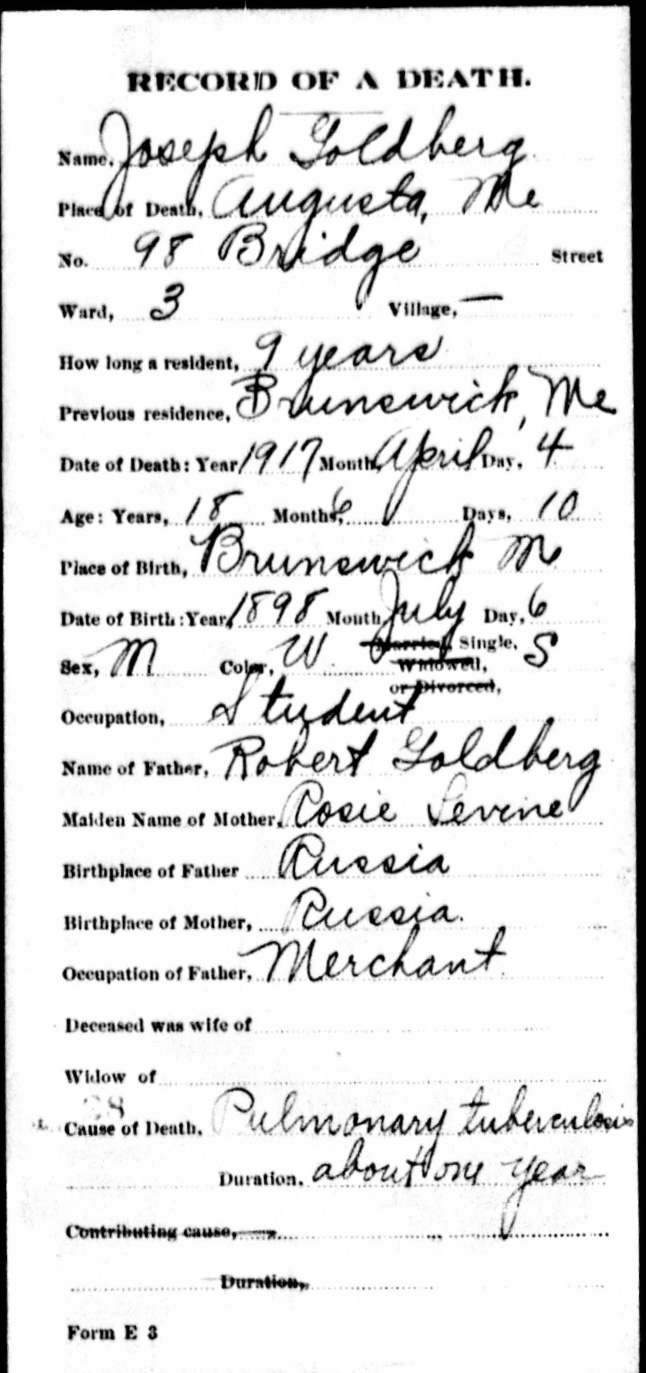 RECORD OF A DEATH.
Name, Joseph Goldberg
Place of Death, Augusta, Me
No. 98 Bridge Street
Ward, 3 Village, —
How long a resident, 9 years
Previous residence, Brunswick, Me
Date of Death: Year 1917 Month, April Day, 4
Age: Years, 18 Months, 6 Days, 10
Place of Birth, Brunswick Me
Date of Birth: Year, 1898 Month July Day, 6
Sex, M Color, W Married, Single, S
Widowed,
or Divorced,
Occupation, Student
Name of Father, Robert Goldberg
Maiden Name of Mother, Rosie Levine
Birthplace of Father Russia
Birthplace of Mother, Russia.
Occupation of Father, Merchant
Deceased was wife of
Widow of
28
Cause of Death, Pulmonary tuberculosis
Duration, about one year
Contributing cause,
Duration,
Form E 3